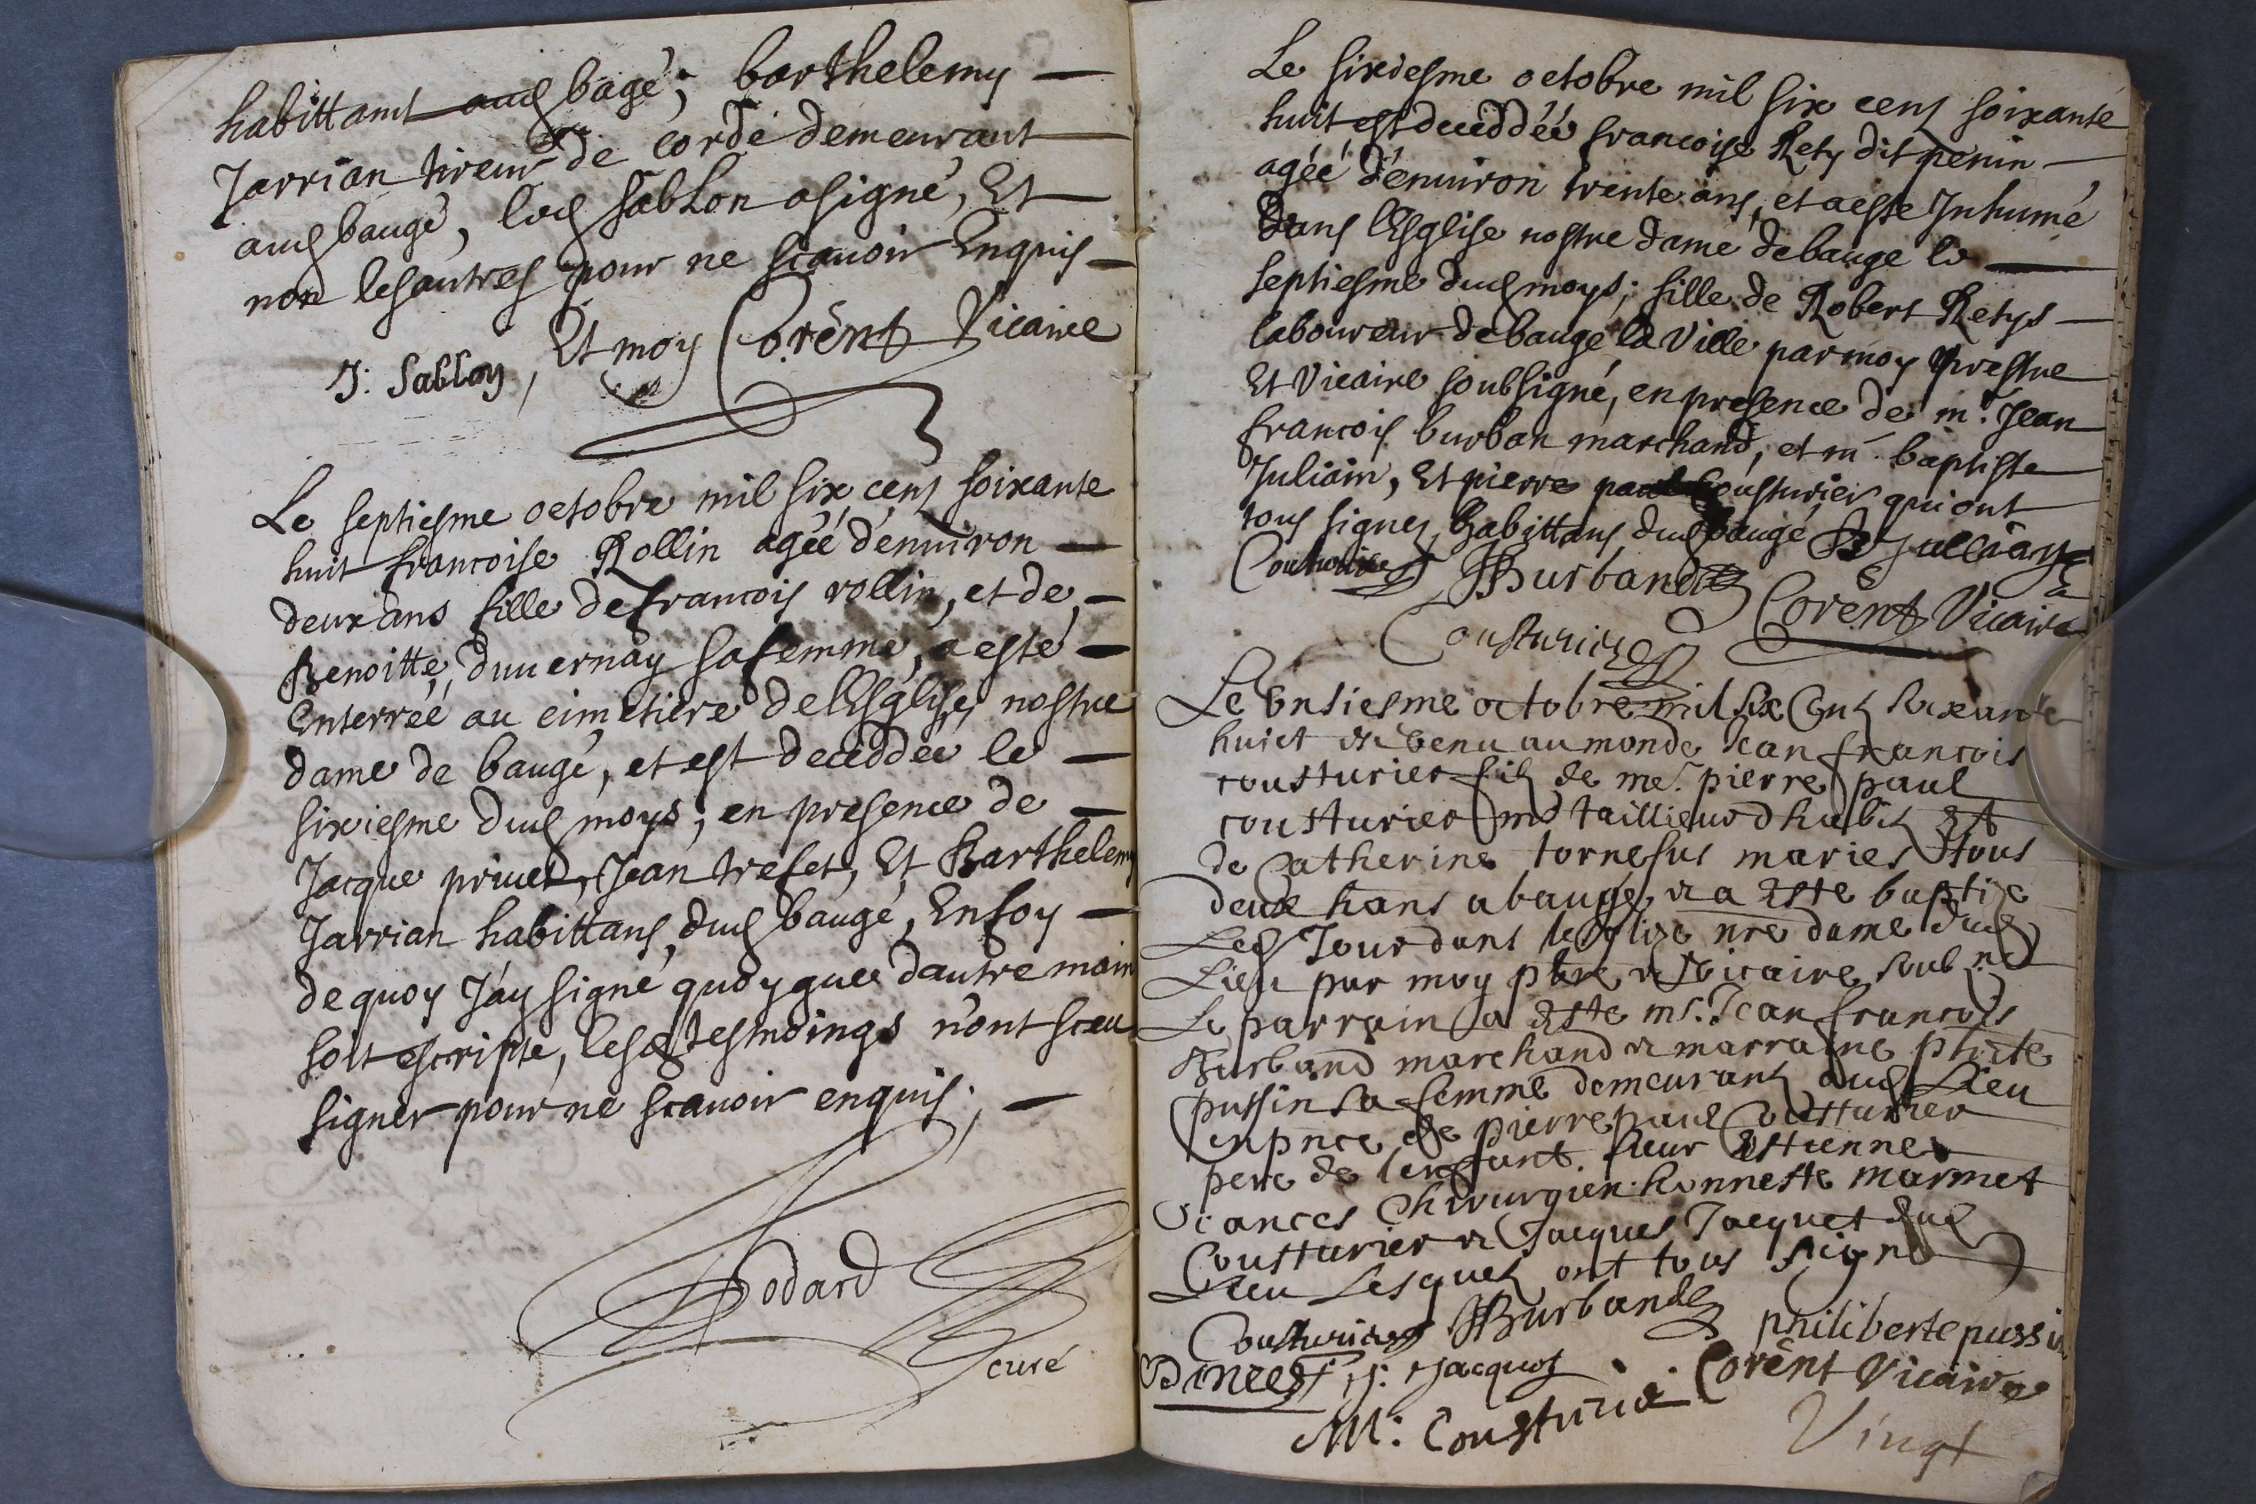 habittant aud bagé; barthelemy
Jarrian tireur de corde demeurant
aud baugé, led sablon a signé, Et
non les autres pour ne scauoir Enquis
J: Sablon, Et moy Corént Vicaire
Le septiesme octobre mil six cens soixante
huit francoise Rollin agéé d'enuiron
deux ans fille de francois rollin, et de
Benoitte duuernay sa femme, a esté
Enterréé au cimetiere de l'Esglise nostre
dame de baugé, et est deceddéé le
sixiesme dud moys; en presence de
Jacque priuet, Jean trefet, Et Barthelemy
Jarrian habittans dud baugé, En foy
de quoy J'ay signé quoyque d'autre main
soit escripte, lesd tesmoings n'ont sceu
signer pour ne scauoir enquis;
Godard
curé
Le sixiesme octobre mil six cens soixante
huit est deceddéé francoise Rety dit perrin
agéé d'enuiron trente ans, et a este Inhumé
Dans l'Esglise nostre dame de bauge le
septiesme dud moys; fille de Robert Retys
laboureur de baugé la Ville par moy prestre
Et Vicaire soubsigné, en presence de mr. Jean
francois burban marchand, et mr. baptiste
Juliain, Et pierre paul Cousturier qui ont
tous signes, habittans dud baugé B Julliain
Cousturier JBurband
Cousturier Corént Vicaire
Le Onsiesme octobre mil six Cens soixante
huict est venu au monde Jean francois
cousturier fils de me. pierre paul
cousturier md taillieur d habits Et
de Catherine tornesus maries tous
deux hans a baugé & a Este baptize
Led Jour dans leglize nre dame dud
Lieu par moy pbre & vicaire soub ne
Le parrain a Este mr. Jean francois
Burband marchand & marraine phte
pussin sa femme demeurans aud Lieu
en pnce de pierre paul Cousturier
pere de lenfant. sieur Estienne
Viances Chirurgien. honneste marmet
Cousturier & Jacques Jacquet dud
Lieu Lesquels ont tous signe
Cousturier JBurband philiberte pussin
J: Jacquet Corént Vicaire
M: Cousturie
Vingt